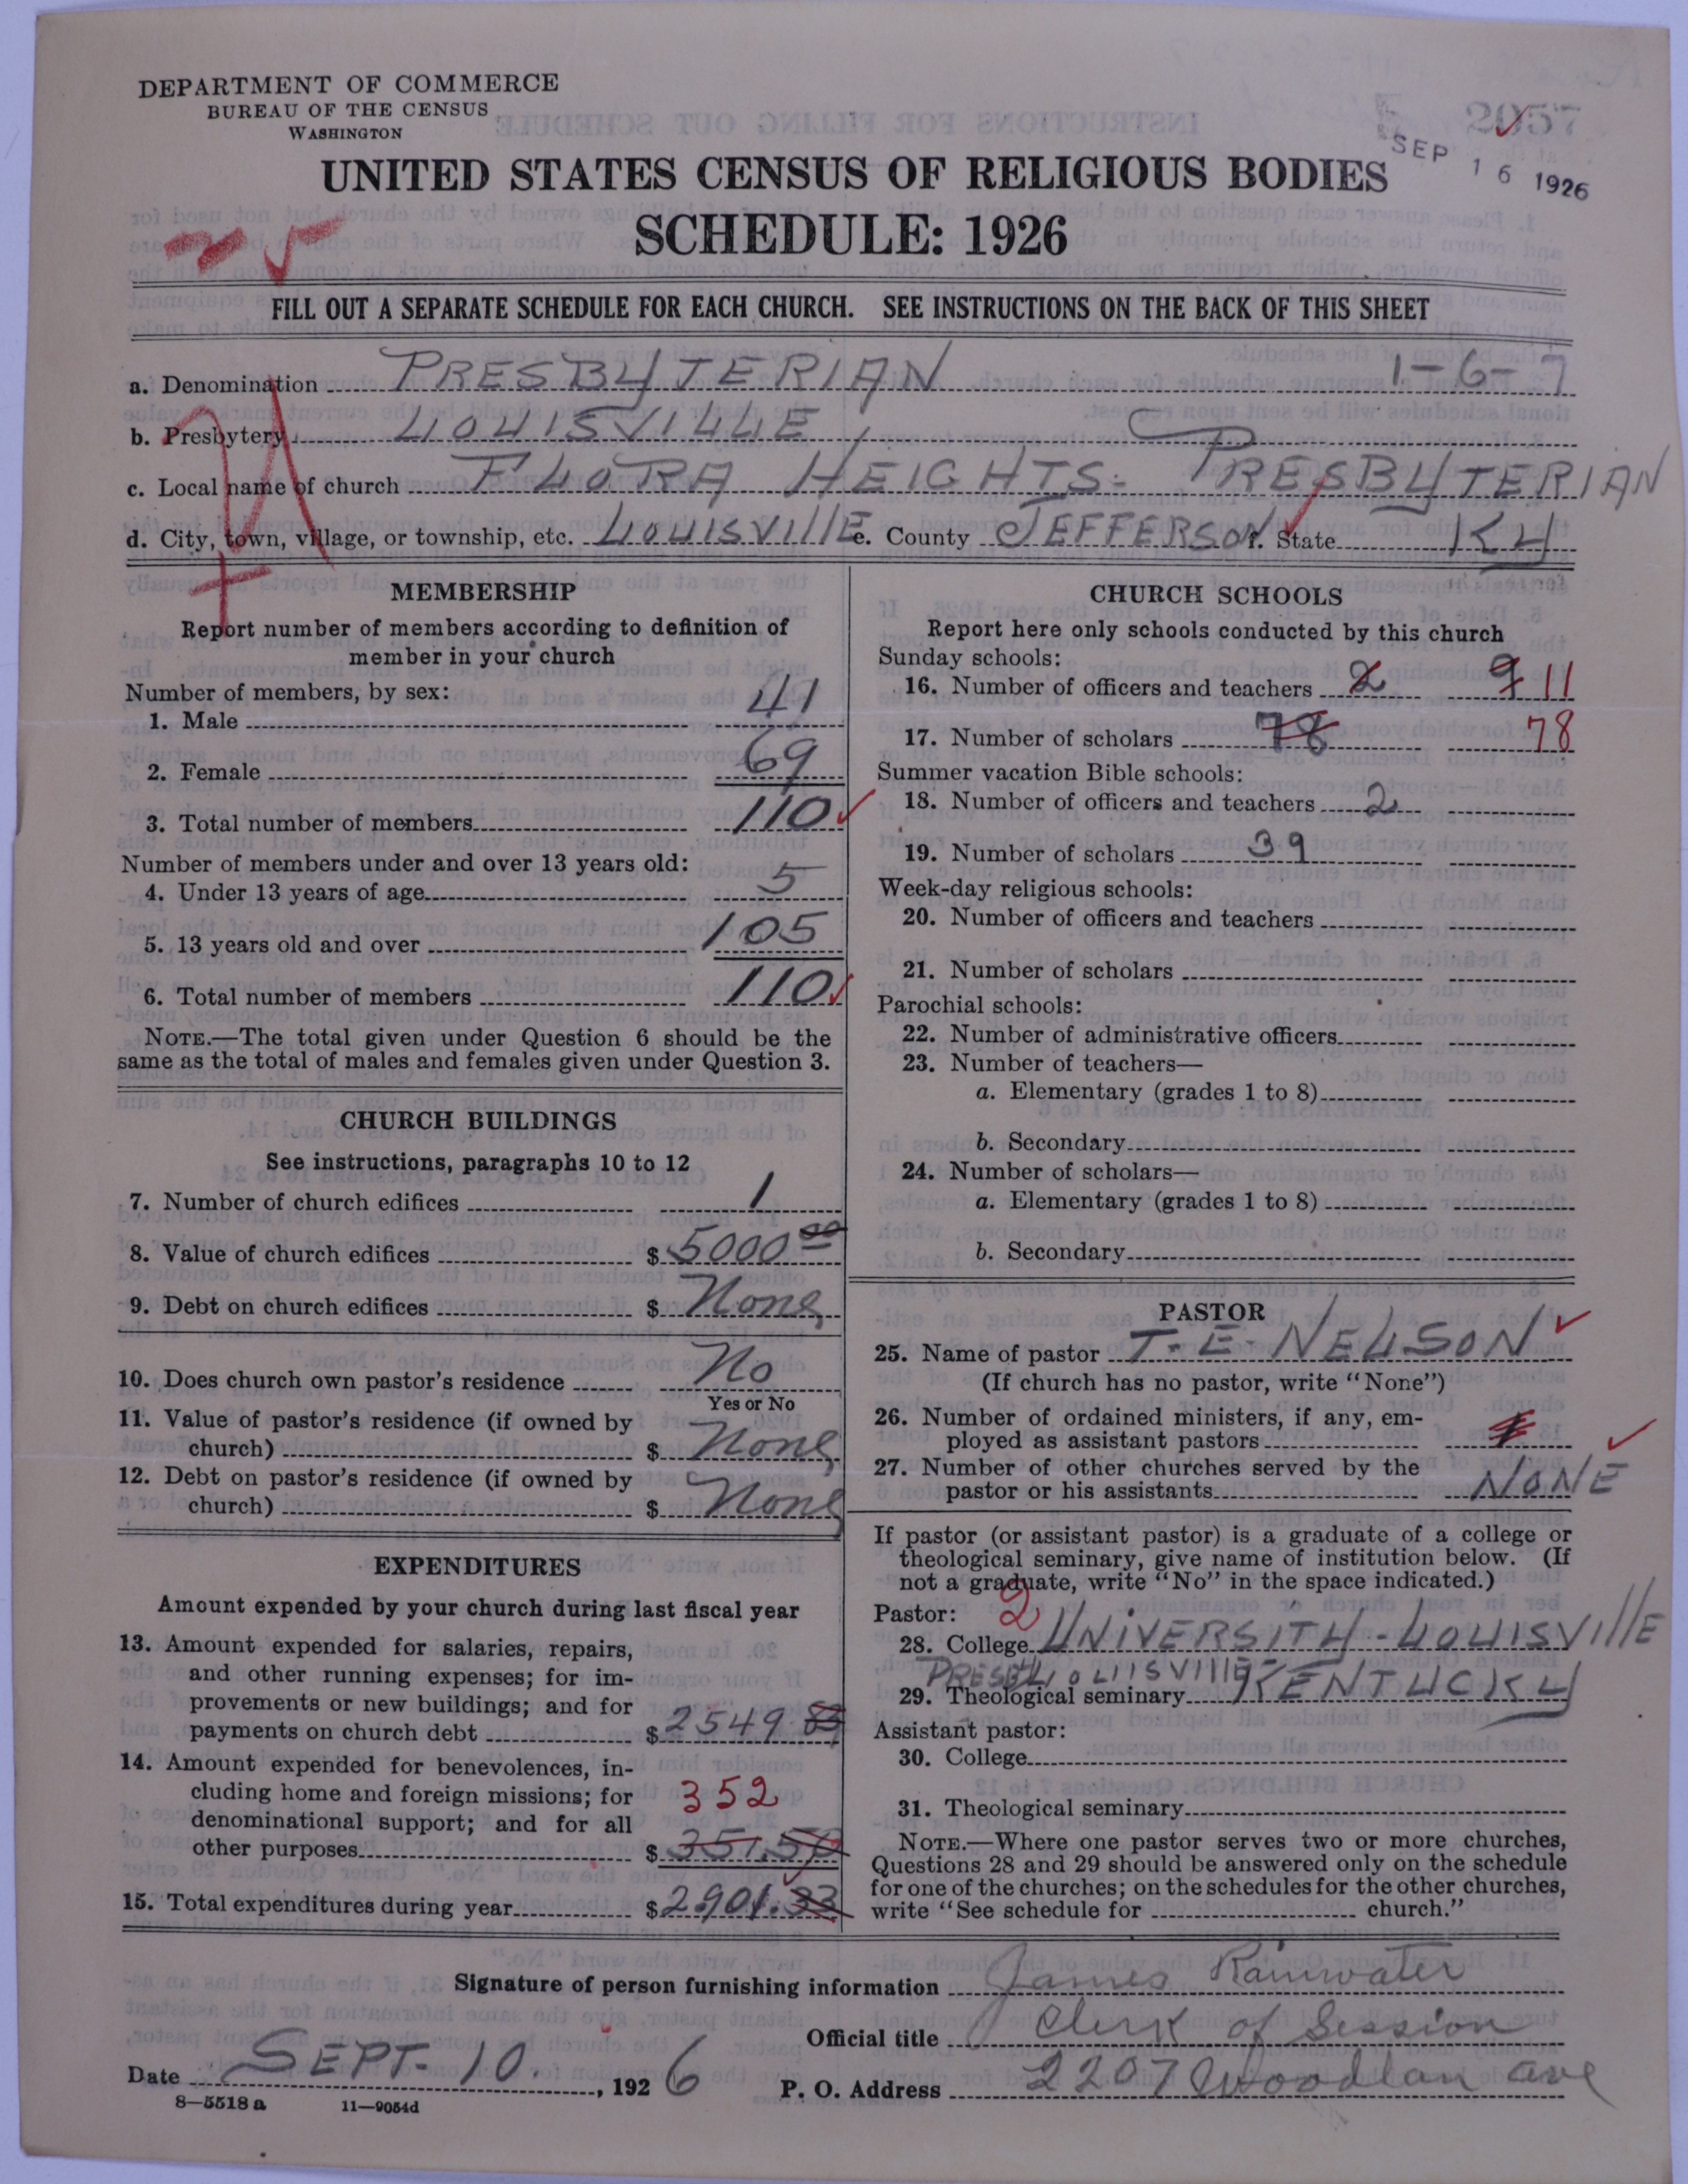 DEPARTMENT OF COMMERCE
BUREAU OF THE CENSUS
WASHINGTON
2057
SEP 16 1926
UNITED STATES CENSUS OF RELIGIOUS BODIES
SCHEDULE: 1926
FILL OUT A SEPARATE SCHEDULE FOR EACH CHURCH. SEE INSTRUCTIONS ON THE BACK OF THIS SHEET
a. Denomination PRESBYTERIAN 1-6-7
b. Presbytery LOUISVILLE
c. Local name of church FLORA HEIGHTS. PRESBYTERIAN
d. City, town, village, or township, etc. LOUISVILLE e. County JEFFERSON f. State KY
MEMBERSHIP
Report number of members according to definition of
member in your church
Number of members, by sex:
1. Male 41
2. Female 69
3. Total number of members 110
Number of members under and over 13 years old:
4. Under 13 years of age 5
5. 13 years old and over 105
6. Total number of members 110
NOTE.—The total given under Question 6 should be the
same as the total of males and females given under Question 3.
CHURCH BUILDINGS
See instructions, paragraphs 10 to 12
7. Number of church edifices 1
8. Value of church edifices $ 5000 00
9. Debt on church edifices $ None
10. Does church own pastor's residence No
Yes or No
11. Value of pastor's residence (if owned by
church) $ None
12. Debt on pastor's residence (if owned by
church) $ None
EXPENDITURES
Amount expended by your church during last fiscal year
13. Amount expended for salaries, repairs,
and other running expenses; for im-
provements or new buildings; and for
payments on church debt $ 2549 83
14. Amount expended for benevolences, in-
cluding home and foreign missions; for 352
denominational support; and for all
other purposes $ 351.50
15. Total expenditures during year $ 2901.33
CHURCH SCHOOLS
Report here only schools conducted by this church
Sunday schools:
16. Number of officers and teachers 2 9 11
17. Number of scholars 78 78
Summer vacation Bible schools:
18. Number of officers and teachers 2
19. Number of scholars 39
Week-day religious schools:
20. Number of officers and teachers
21. Number of scholars
Parochial schools:
22. Number of administrative officers
23. Number of teachers—
a. Elementary (grades 1 to 8)
b. Secondary
24. Number of scholars—
a. Elementary (grades 1 to 8)
b. Secondary
PASTOR
25. Name of pastor T. E. NELSON
(If church has no pastor, write "None")
26. Number of ordained ministers, if any, em-
ployed as assistant pastors 1
27. Number of other churches served by the
pastor or his assistants NONE
If pastor (or assistant pastor) is a graduate of a college or
theological seminary, give name of institution below. (If
not a graduate, write "No" in the space indicated.)
Pastor: 2
28. College UNIVERSITY - LOUISVILLE
PRESBY LOUISVILLE-
29. Theological seminary KENTUCKY
Assistant pastor:
30. College
31. Theological seminary
NOTE.—Where one pastor serves two or more churches,
Questions 28 and 29 should be answered only on the schedule
for one of the churches; on the schedules for the other churches,
write "See schedule for church."
Signature of person furnishing information James Rainwater
Official title Clerk of Session
Date SEPT. 10. , 1926
P. O. Address 2207 Woodlan ave
8—5518a 11—9054d